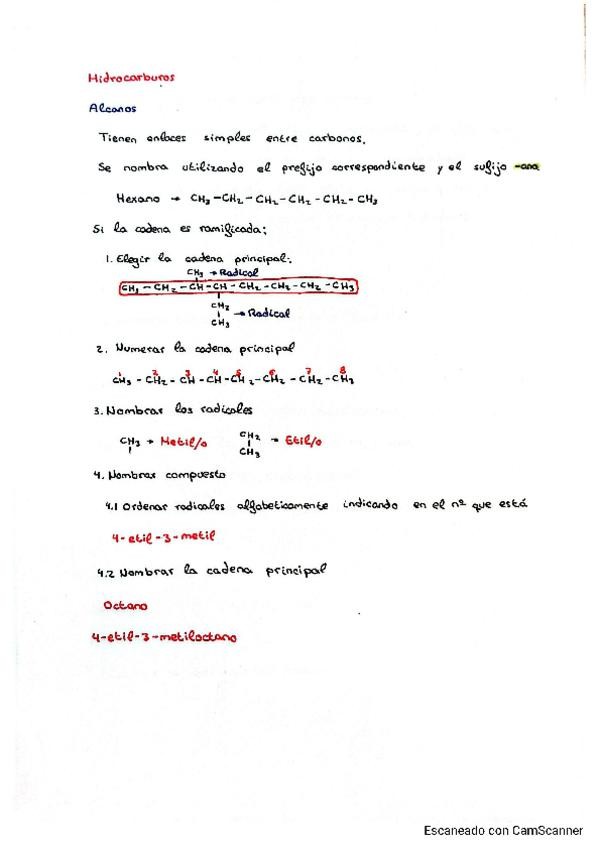 Hidrocarburos
Alcanos
Tienen enlaces simples entre carbonos.
Se nombra utilizando el prefijo correspondiente y el sufijo -ano
Hexano → CH3 - CH2 - CH2 - CH2 - CH2 - CH3
Si la cadena es ramificada:
1. Elegir la cadena principal:
CH3 → Radical
CH3 - CH2 - CH - CH - CH2 - CH2 - CH2 - CH3
CH2
→ Radical
CH3
2. Numerar la cadena principal
1 2 3 4 5 6 7 8
CH3 - CH2 - CH - CH - CH2 - CH2 - CH2 - CH3
3. Nombrar los radicales
CH3 → Metil/o CH2 → Etil/o
CH3
4. Nombrar compuesto
4.1 Ordenar radicales alfabeticamente indicando en el nº que está
4-etil-3-metil
4.2 Nombrar la cadena principal
Octano
4-etil-3-metiloctano
Escaneado con CamScanner